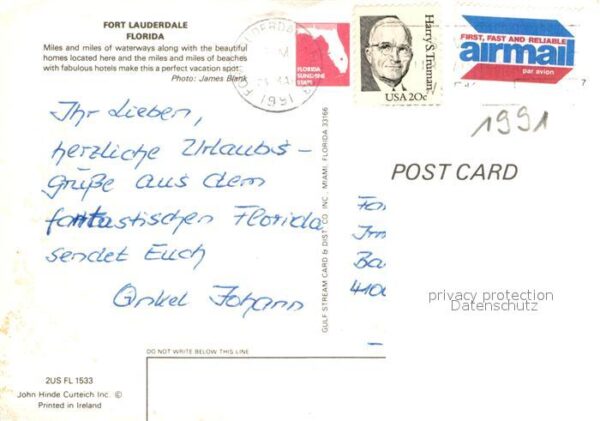 FORT LAUDERDALE
FLORIDA
Miles and miles of waterways along with the beautiful
homes located here and the miles and miles of beaches
with fabulous hotels make this a perfect vacation spot.
Photo: James Blank
FLORIDA
SUNSHINE
STATE
Harry S. Truman
USA 20c
FIRST, FAST AND RELIABLE
airmail
par avion
7
1991
1991
Ihr Lieben,
herzliche Urlaubs-
grüße aus dem
fantastischen Florida
sendet Euch
Onkel Johann
GULF STREAM CARD & DIST. CO. INC., MIAMI, FLORIDA 33166
POST CARD
privacy protection
Datenschutz
DO NOT WRITE BELOW THIS LINE
2US FL 1533
John Hinde Curteich Inc. ©
Printed in Ireland